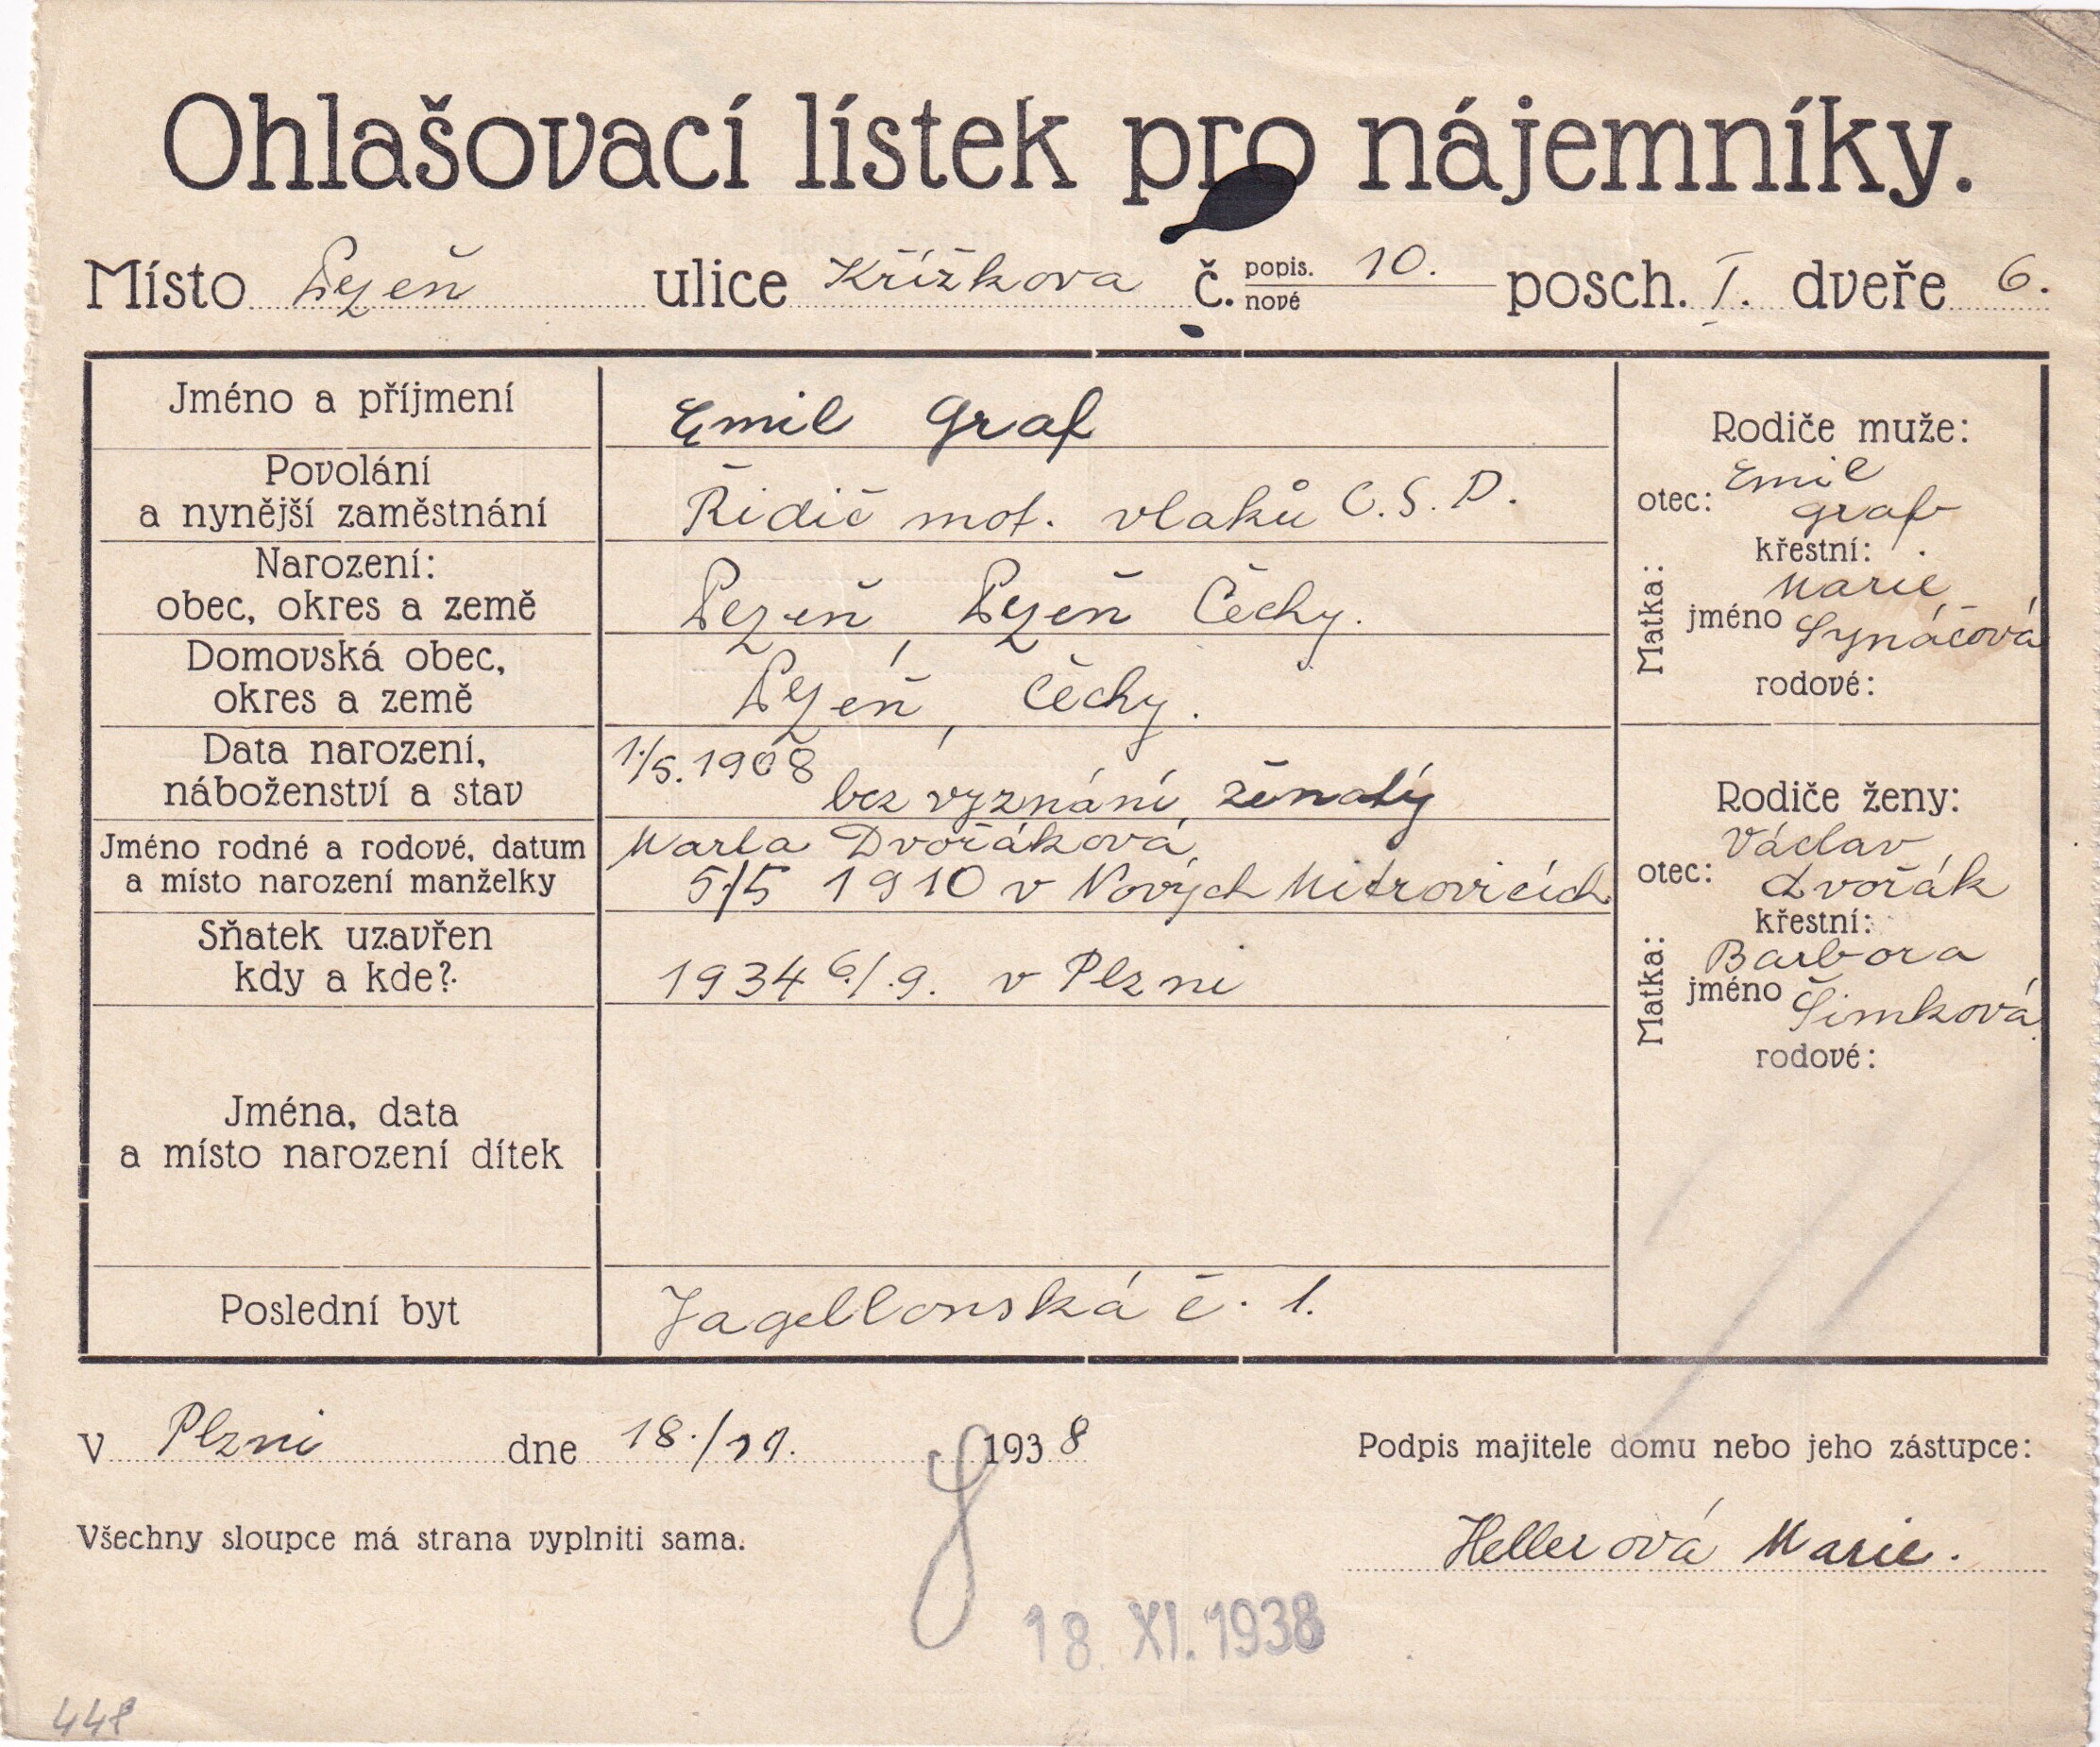 Ohlašovací lístek pro nájemníky.
Místo Plzeň ulice Křížkova č. popis. nové 10. posch. I. dveře 6.
Jméno a příjmení
Emil Graf
Povolání
a nynější zaměstnání
Řidič mot. vlaků C.S.D.
Narození:
obec, okres a země
Plzeň, Plzeň Čechy.
Domovská obec,
okres a země
Plzeň, Čechy.
Data narození,
náboženství a stav
1./5. 1908
bez vyznání, ženatý
Jméno rodné a rodové, datum
a místo narození manželky
Marta Dvořáková
5/5 1910 v Nových Mitrovicích
Sňatek uzavřen
kdy a kde?
1934 6./9. v Plzni
Jména, data
a místo narození dítek
Poslední byt
Jagellonská č. 1.
Rodiče muže:
otec: Emil
Graf
Matka:
křestní:
Marie
jméno Synáčová
rodové:
Rodiče ženy:
Václav
otec: Dvořák
Matka:
křestní:
Barbora
jméno Šimková
rodové:
V Plzni dne 18./11. 1938
Podpis majitele domu nebo jeho zástupce:
Všechny sloupce má strana vyplniti sama.
Hellerová Marie.
18. XI. 1938
448